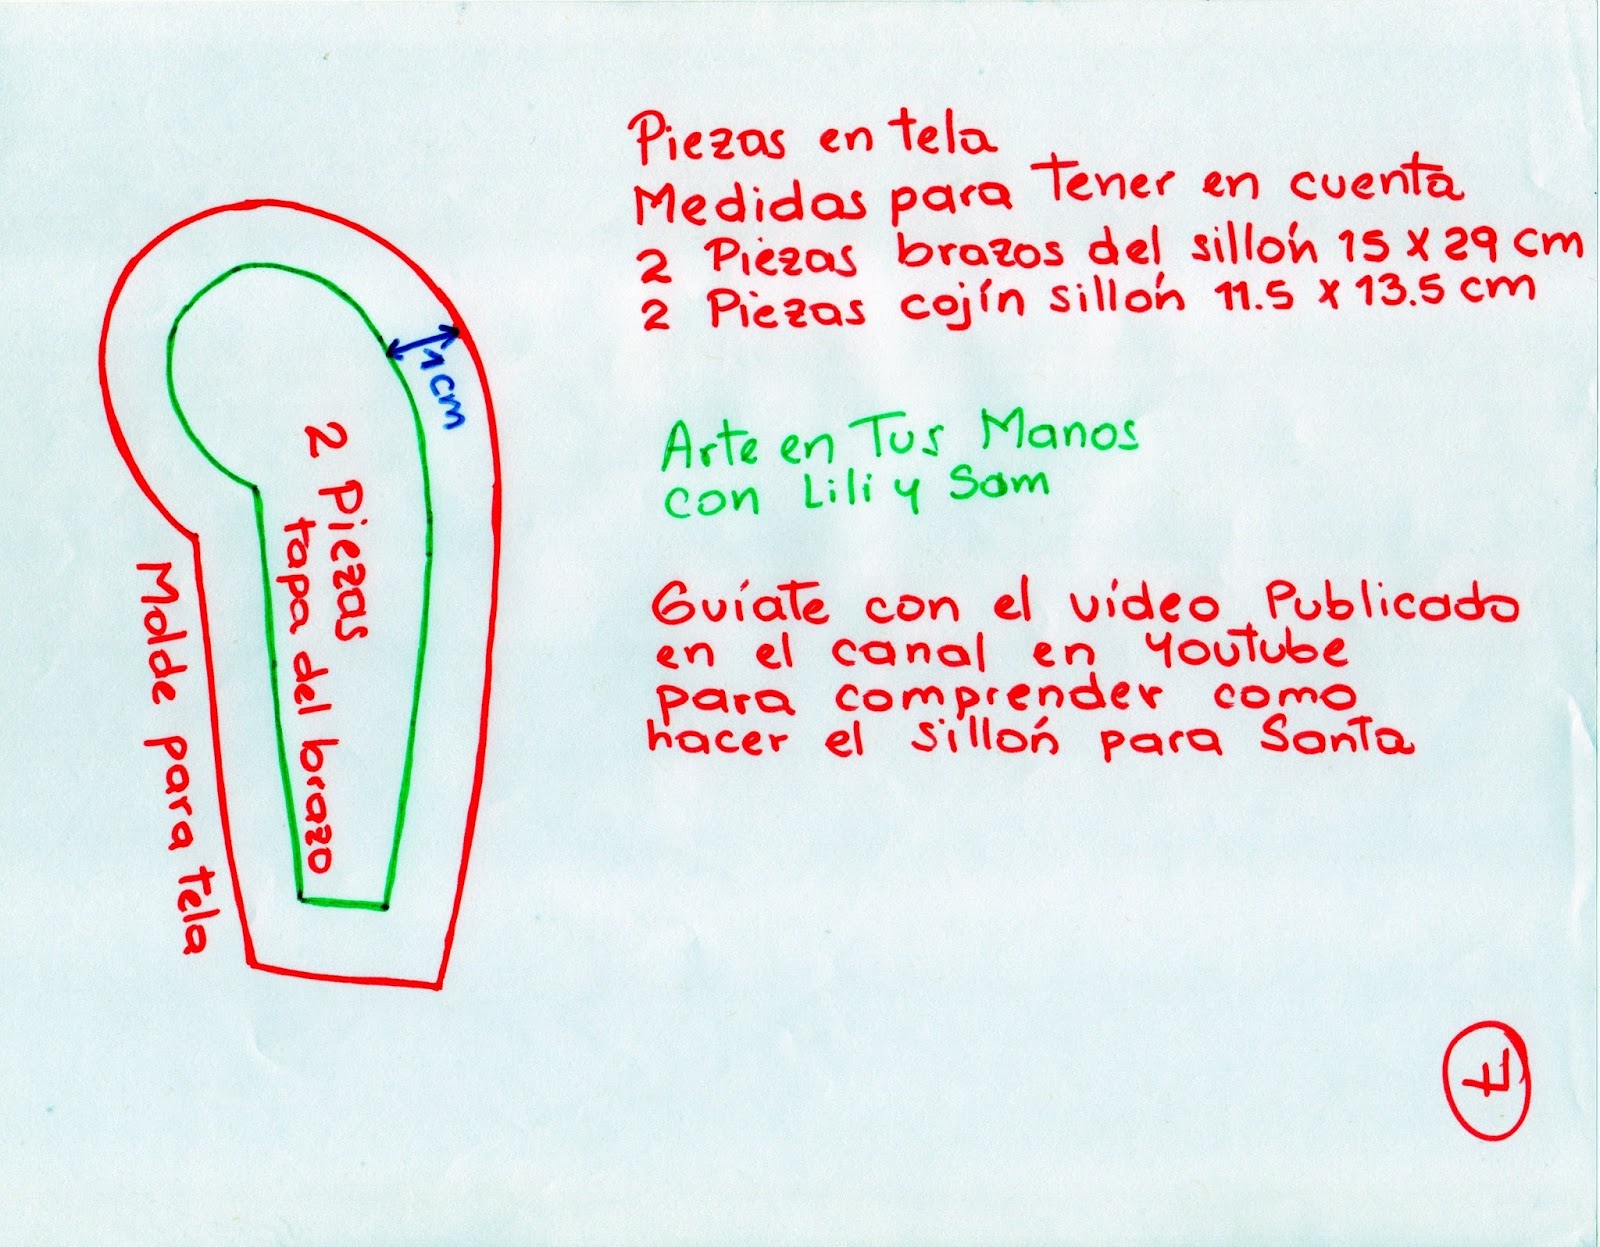 Piezas en tela
Medidas para Tener en cuenta
2 Piezas brazos del sillón 15 x 29 cm
2 Piezas cojín sillón 11.5 x 13.5 cm
1 cm
2 Piezas
tapa del brazo
Molde para tela
Arte en Tus Manos
con Lili y Sam
Guíate con el vídeo Publicado
en el canal en Youtube
para comprender como
hacer el sillón para Santa
7